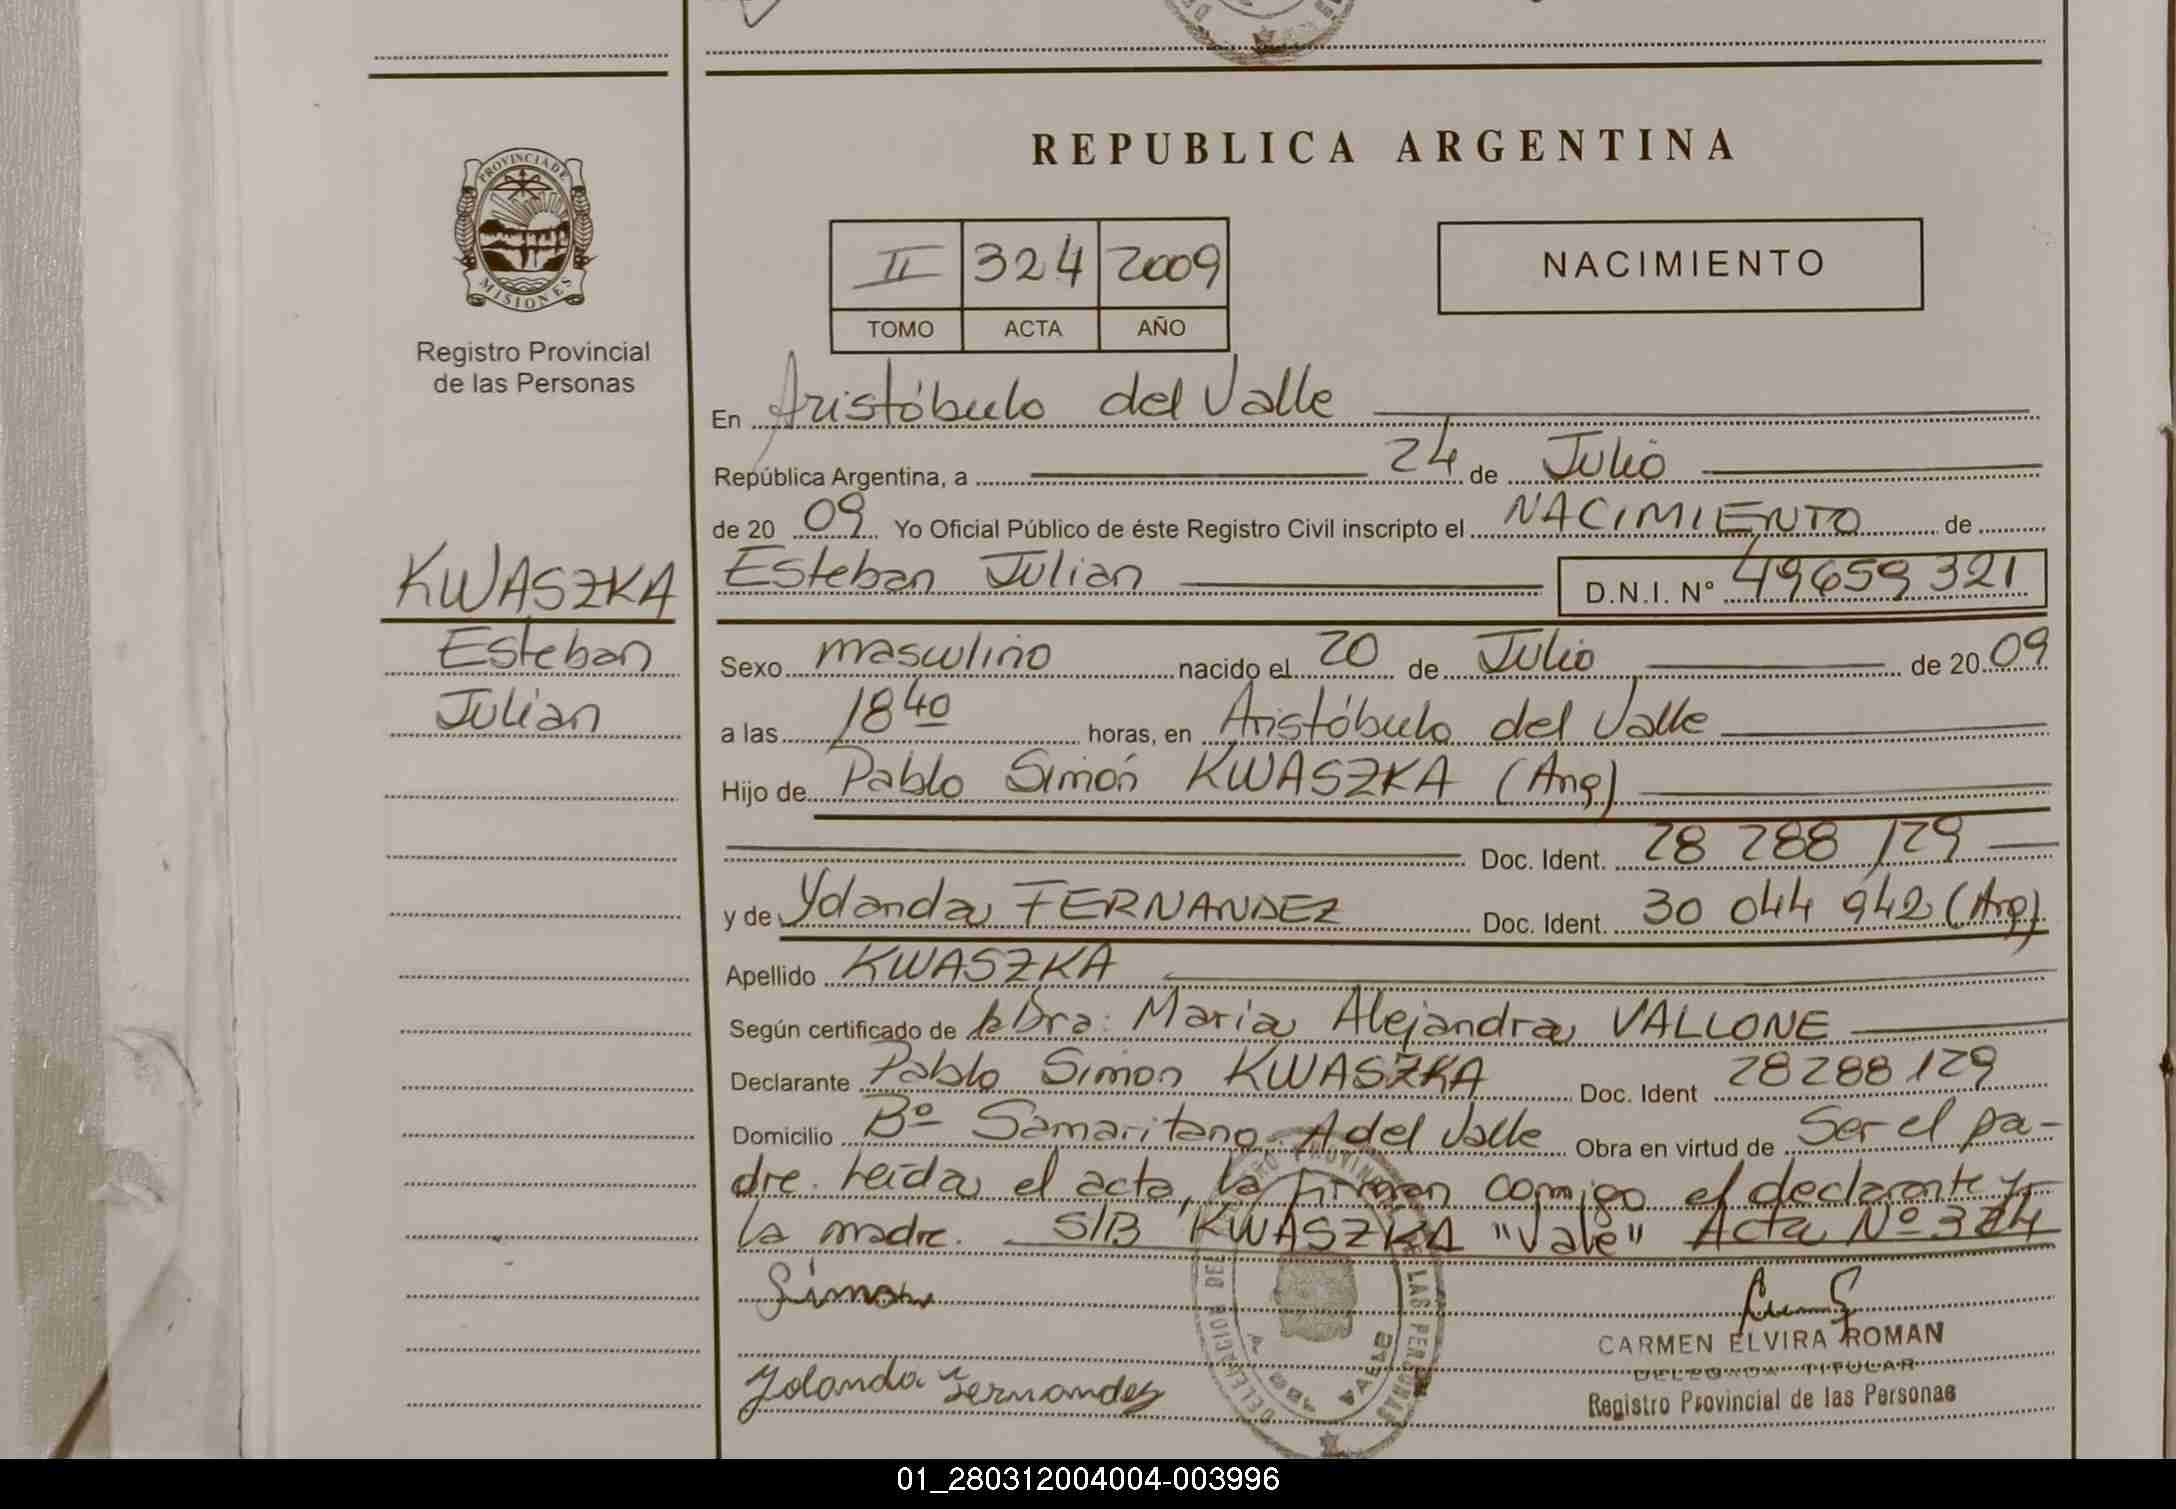 REPUBLICA ARGENTINA
PROVINCIA DE
MISIONES
Registro Provincial
de las Personas
II 324 2009
TOMO ACTA AÑO
NACIMIENTO
En Aristóbulo del Valle
República Argentina, a 24 de Julio
de 20 09 Yo Oficial Público de éste Registro Civil inscripto el NACIMIENTO de
KWASZKA
Esteban
Julian
Esteban Julian D.N.I. Nº 49659321
Sexo masculino nacido el 20 de Julio de 20 09
a las 18 40 horas, en Aristóbulo del Valle
Hijo de Pablo Simón KWASZKA (Arg)
Doc. Ident. 28 288 129
y de Yolanda FERNANDEZ Doc. Ident. 30 044 942 (Arg)
Apellido KWASZKA
Según certificado de la Dra: Maria Alejandra VALLONE
Declarante Pablo Simon KWASZKA Doc. Ident 28288129
Domicilio Bº Samaritano A del Valle Obra en virtud de Ser el pa-
dre. Leida el acta, la firman comigo el declarante y
la madre. S/B KWASZKA "Vale" Acta Nº 324
Simon
CARMEN ELVIRA ROMAN
DELEGADA TITULAR
Yolanda Fernandez
Registro Provincial de las Personas
01_280312004004-003996